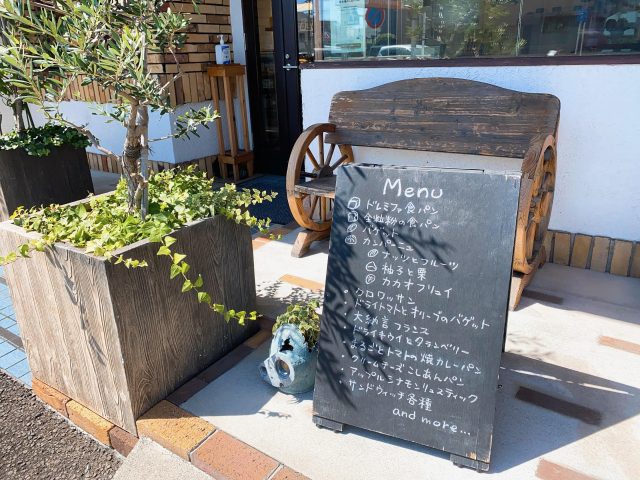 Menu
ドレミファ食パン
全粒粉の食パン
バゲット
カンパーニュ
ナッツとフルーツ
柚子と栗
カカオフリュイ
・クロワッサン
・ドライトマトとオリーブのバゲット
・大納言フランス
・ドライキウイとクランベリー
・まるごとトマトの焼カレーパン
・クリームチーズこしあんパン
・アップルシナモンリュスティック
・サンドウィッチ各種
and more...